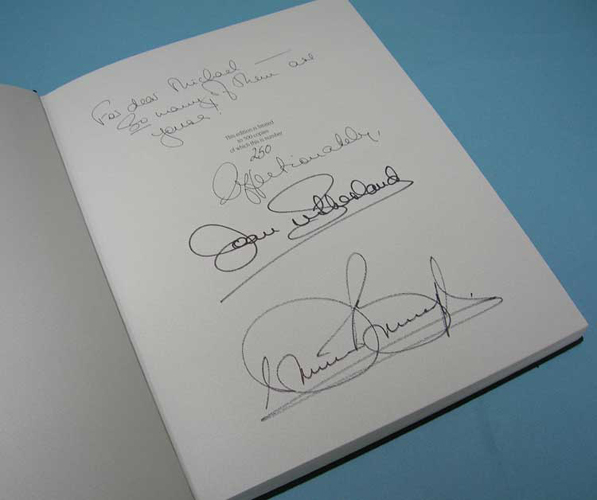 For dear Michael —
So many of them are
yours!
This edition is limited
to 500 copies
of which this is number
250
Affectionately,
Joan Sutherland